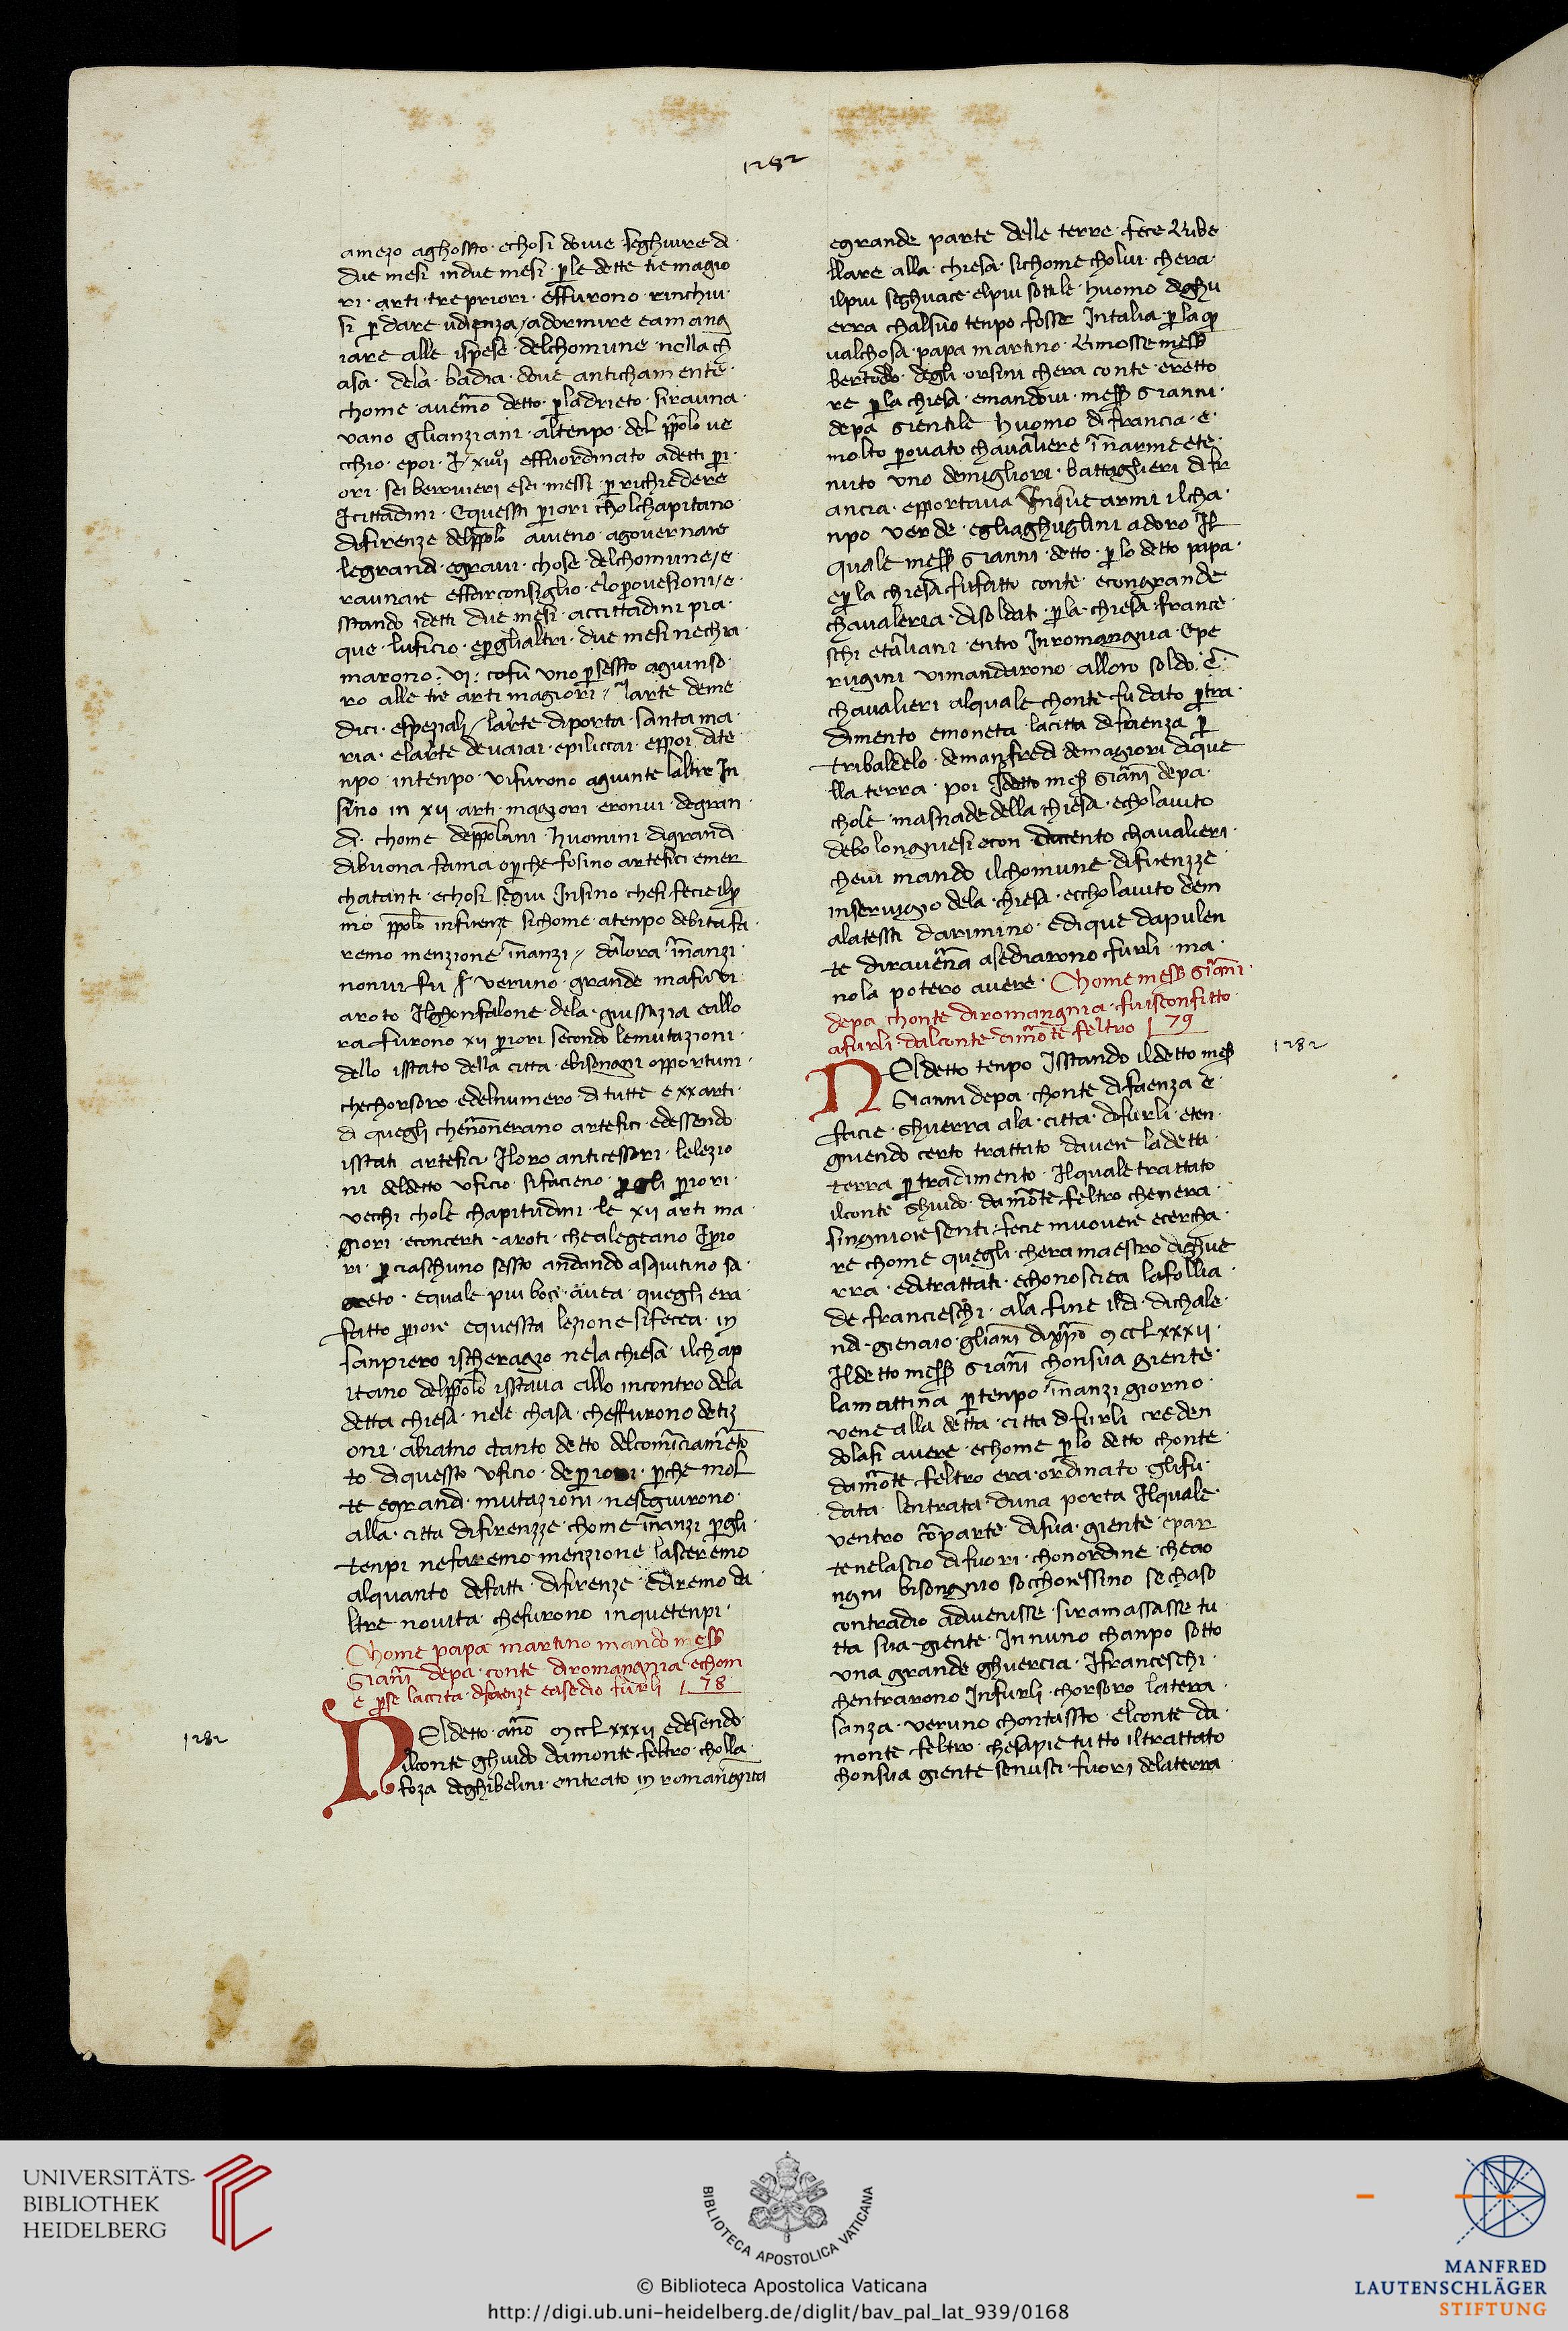 1282
amezo aghossto · echosi doue seghuire di
due mesi indue mesi · ple dette tre magio
ri · arti · tre priori · effurono rinchiu
si p dare udienza / adormire eamang
iare alle ispese · delchomune · nella ch
asa · dela · badia · doue antichamente ·
chome · auemo detto · pladrieto · sirauna
vano glianziani · altenpo · del ppolo ve
cchio · epoi · effuordinato adetti pri
ori · sei berrvieri esei · messi · prichiedere
Icittadini · Equessti priori cholchapitano
difirenze delppolo aueno · agouernare
legrandi · egraui · chose · delchomune / e
raunare effarconsiglio · eleprouesioni / e ·
sstando idetti due mesi · accittadini pia
que · luficio · epglialtri · due mesi nechia
marono : vj : cosu uno psessto agiunso
ro alle tre arti magiori / larte deme
dici · espeziali / larte diporta · santa ma
ria · elarte deuaiai · epiliccai · eppoi dite
npo · intenpo · vifurono agiunte laltre In
sino in xij · arti · magiori · eronui · degran
di · chome deppolani · huomini digrandi
dibuona fama opche fosino artefici emer
chatanti · echosi segui Insino chesi fecie ilpri
mo ppolo infirenze sichome · atenpo debita fa
remo menzione inanzi / dalora · inanzi ·
nonui fu veruno · grande mafuui
aroto Ilghonfalone dela · giusstizia eallo
ra furono xij priori secondo lemutazioni ·
dello isstato della citta · ebisongni opportuni ·
chechorsoro · edelnumero · di tutte e xxj arti ·
di quegli chenonerano artefici · edessendo
isstati artefici Iloro anticessori · lelezio
ni deldetto uficio · sifacieno · pgli priori ·
vecchi chole chapitudini · le xij arti ma
giori · econcerti · aroti · chealegeano Iprio
ri · pciaschuno sessto andando asquitino se
greto · equale piu boci · auea · quegli era
fatto priore equessta lezione sifecea · in
sanpiero ischeragio nela chiesa · ilchap
itano delppolo isstaua allo incontro dela
detta chiesa · nele · chasa · cheffurono detiz
oni · abiamo dtanto detto delcominciamento
to · diquessto uficio · depriori · pche mol
te egrandi · mutazioni · neseguirono ·
alla · citta difirenzze · chome inanzi pgli ·
tenpi nefaremo menzione lasceremo
alquanto defatti · difirenze · ediremo da
ltre nouita · chefurono inquetenpi ·
Chome papa martino mando mess
Gianni depa · conte diromangnia · echom
e pse laccita · difaenze easedio furli 78
1282
Neldetto · anno mcclxxxij edesendo ·
ilconte ghuido damonte feltro · cholla ·
foza deghibelini · entrato in romangnia
egrande parte delle terre · fece Rube
llare alla · chiesa · sichome cholui · chera ·
ilpiu seghuace · elpiu sottile · huomo dighu
erra chalsuo tenpo fosse Intalia · pla q
ualchosa · papa martino · Rimosse mess
bertoldo · degli · orsini chera conte · eretto
re pla chiesa · emandoui · mess Gianni ·
depa gientile huomo di francia · e ·
molto prouato chavaliere inarme ete ·
nuto uno demigliori · battaglieri di fr
ancia · epportaua Inque armi ilcha ·
npo verde · egliaghuglini adoro Il
quale mess Gianni · detto · plo detto papa ·
epla chiesa fufatto conte · econgrande
chaualeria · disoldati · pla · chiesa · france
schi etaliani · entro Inromangnia · Epe
rugini vimandarono · alloro soldo · c̃ ·
chavalieri alquale chonte · fu dato ptra
dimento emoneta · lacitta difaenza p
tribaldelo · demanfredi demagiori dique
lla terra · poi Idetto mess gianni depa ·
chole · masnade della chiesa · echolaiuto
debolongniesi econ ducento chavalieri ·
cheui mando ilchomune · difirenzze
inseruigio dela · chiesa · eccholaiuto dem
alatessti darimino · edique dapulen
te diravena asediarono furli · ma ·
nola potero auere · Chome mess gianni ·
depa chonte diromangnia · fuisconfitto ·
afurli · dalconte dimonte feltro 79
1282
Neldetto tenpo Isstando ildetto mess
Gianni depa · chonte difaenza e ·
facie · ghuerra ala · citta · difurli · eten
gniendo certo trattato dauere ladetta ·
terra p tradimento · Ilquale trattato
ilconte ghuido · damonte feltro chenera ·
singniore senti · fecie muouere ecercha ·
re chome quegli · chera maestro dighue
rra · editrattati · echonosciea lafollia ·
de francieschi · ala fine ildi · dichale ·
ndi · gienaio · gliani dixpo mcclxxxij ·
Ildetto mess gianni chonsua giente ·
lamattina ptenpo inanzi giorno ·
vene alla detta · citta difurli creden
dolasi auere · echome plo detto chonte
damonte feltro era · ordinato glifu ·
data lentrata · duna porta Ilquale
ventro conparte difua · giente · epar
tenelascio difuori · chonordine · cheao
ngni bisongnio socchoressino sechaso
contradio aduenisse · siramassasse tu
tta sua giente · Innuno chanpo sotto
una grande ghuercia · Ifranceschi ·
chentrarono Infurli · chorsoro laterra ·
sanza · veruno chontassto · elconte da ·
monte · feltro · chesapie tutto iltrattato
chonsua giente senusci · fuori delaterra
UNIVERSITÄTS-
BIBLIOTHEK
HEIDELBERG
BIBLIOTECA APOSTOLICA VATICANA
© Biblioteca Apostolica Vaticana
http://digi.ub.uni-heidelberg.de/diglit/bav_pal_lat_939/0168
MANFRED
LAUTENSCHLÄGER
STIFTUNG